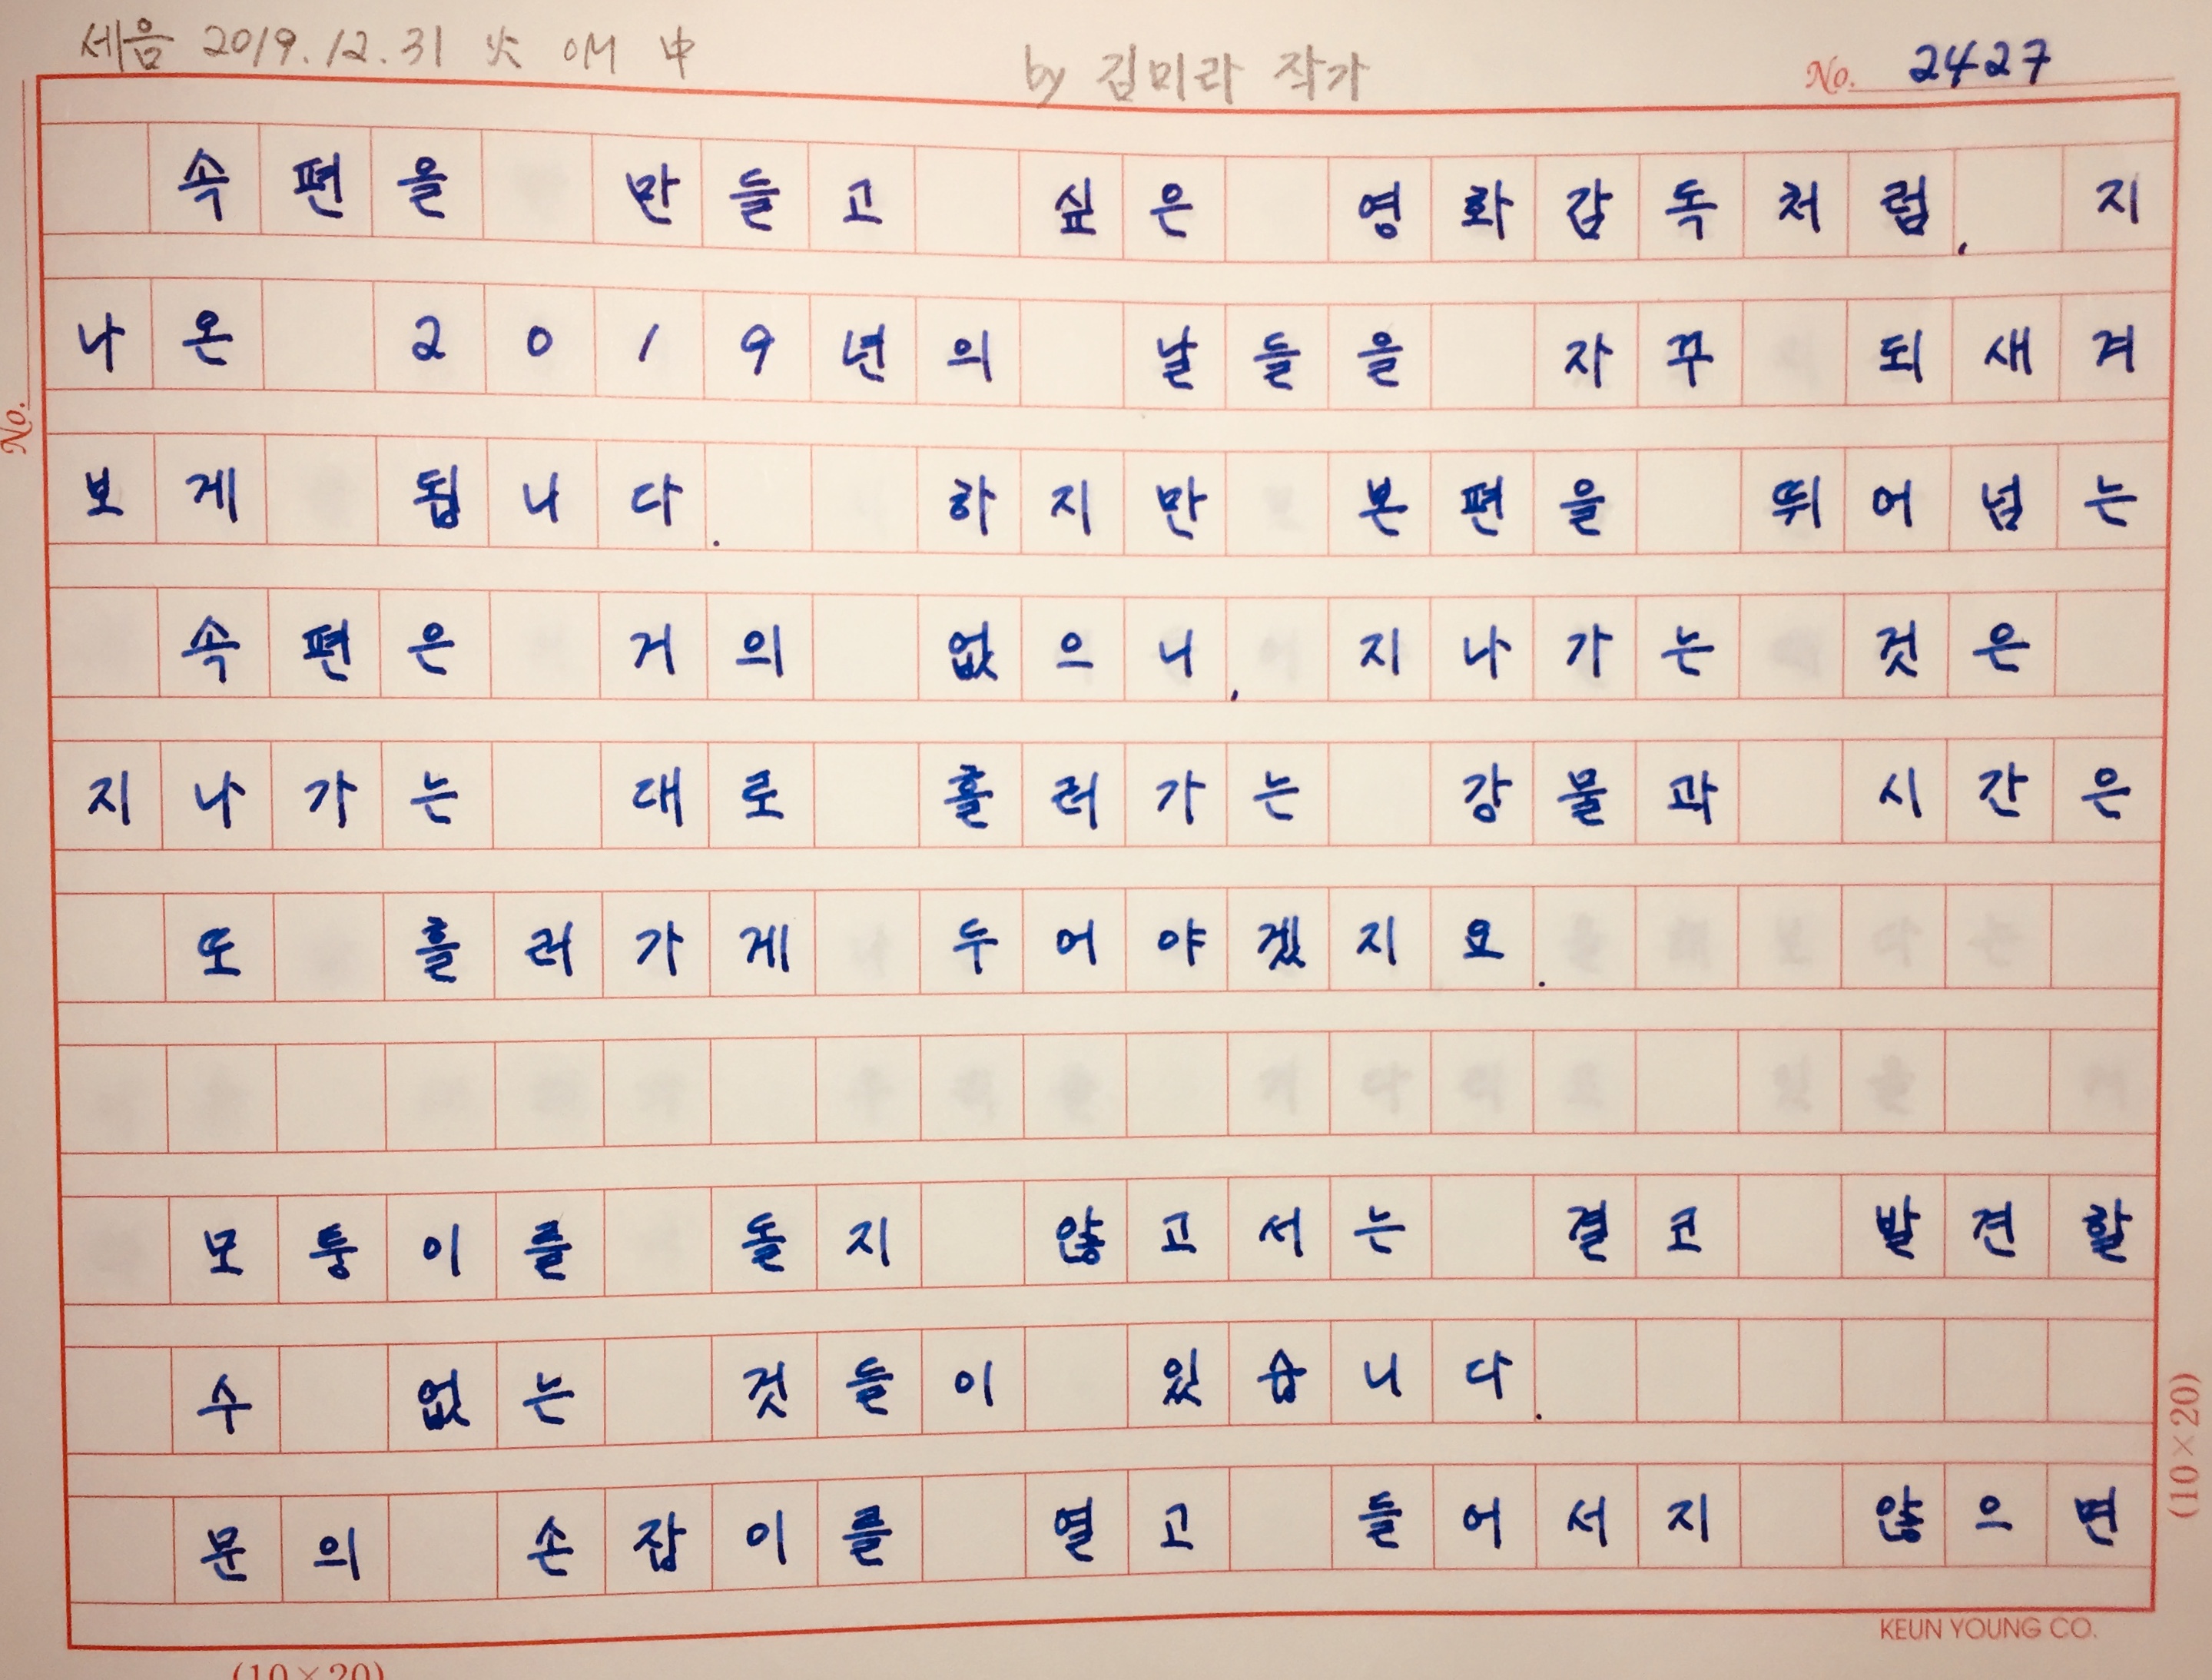 세음 2019.12.31 火 OM 中
by 김미라 작가
No. 2427
속편을 만들고 싶은 영화감독처럼, 지
나온 2019년의 날들을 자꾸 되새겨
보게 됩니다. 하지만 본편을 뛰어넘는
속편은 거의 없으니, 지나가는 것은
지나가는 대로 흘러가는 강물과 시간은
또 흘러가게 두어야겠지요.
모퉁이를 돌지 않고서는 결코 발견할
수 없는 것들이 있습니다.
문의 손잡이를 열고 들어서지 않으면
No.
(10×20)
KEUN YOUNG CO.
(10×20)